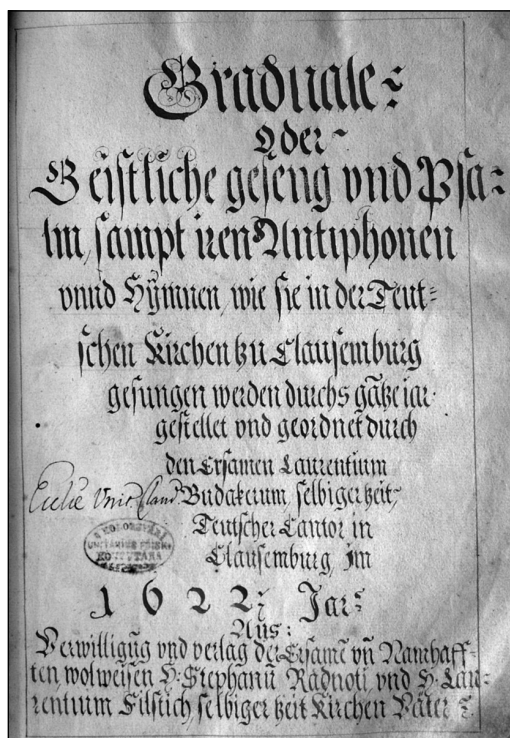 Graduale:
Oder
Geistliche geseng vnd Psa:
lm, sampt iren Antiphonen
vnnd Hÿmnen, wie sie in der Teut:
schen Kirchen tzu Clausemburg
gesungen werden durchs gãtze iar
gestellet vnd geordnet durch
den Ersamen Laurentium
Budakerum selbiger tzeit,
Teutscher Cantor in
Clausemburg, Im
1622: Jar:
Aus:
Verwilligũg vnd verlag der Ersamẽ vñ Namhaff-
ten, wolweisen H: Stephanũ Radnoti, vnd H: Lau:
rentium Filstich, selbiger tzeit Kirchen Väter
Eccliae Unit. Claud.
KOLOZSVÁRI
UNITÁRIUS
KÖNYVTÁRA